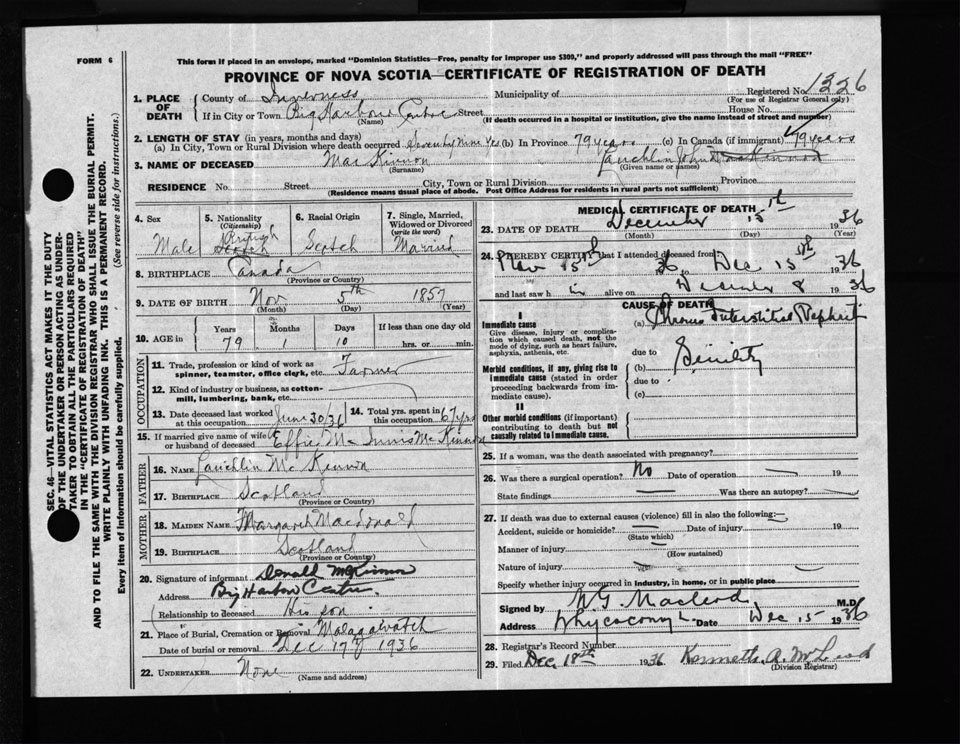 FORM 6
This form if placed in an envelope, marked "Dominion Statistics—Free, penalty for improper use $300," and properly addressed will pass through the mail "FREE"
PROVINCE OF NOVA SCOTIA—CERTIFICATE OF REGISTRATION OF DEATH
Registered No. 1326
(For use of Registrar General only)
1. PLACE OF DEATH
County of Inverness Municipality of
If in City or Town Big Harbour Centre Street House No.
(Name) (If death occurred in a hospital or institution, give the name instead of street and number)
2. LENGTH OF STAY (in years, months and days)
(a) In City, Town or Rural Division where death occurred Seventy Nine Yrs (b) In Province 79 years (c) In Canada (if immigrant) 79 years
3. NAME OF DECEASED Mac Kinnon Lauchlin John
(Surname) (Given name or names)
RESIDENCE No. Street City, Town or Rural Division Province
(Residence means usual place of abode. Post Office Address for residents in rural parts not sufficient)
4. Sex
Male
5. Nationality
(Citizenship)
British
Scotch
6. Racial Origin
Scotch
7. Single, Married, Widowed or Divorced
(write the word)
Married
8. BIRTHPLACE Canada
(Province or Country)
9. DATE OF BIRTH Nov 5th 1857
(Month) (Day) (Year)
10. AGE in
Years Months Days If less than one day old
79 1 10 hrs. or min.
OCCUPATION
11. Trade, profession or kind of work as spinner, teamster, office clerk, etc. Farmer
12. Kind of industry or business, as cotton-mill, lumbering, bank, etc.
13. Date deceased last worked at this occupation June 30/36
14. Total yrs. spent in this occupation 67 yrs
15. If married give name of wife or husband of deceased Effie Mc Innis McKinnon
FATHER
16. NAME Lauchlin Mc Kinnon
17. BIRTHPLACE Scotland
(Province or Country)
MOTHER
18. MAIDEN NAME Margaret Macdonald
19. BIRTHPLACE Scotland
(Province or Country)
20. Signature of informant Donald McKinnon
Address Big Harbour Centre
Relationship to deceased His son
21. Place of Burial, Cremation or Removal Malagawatch
Date of burial or removal Dec 17th 1936
22. UNDERTAKER None
(Name and address)
MEDICAL CERTIFICATE OF DEATH
23. DATE OF DEATH December 15th 1936
(Month) (Day) (Year)
24. I HEREBY CERTIFY that I attended deceased from
Nov 15th 36 to Dec 15th 1936
and last saw h im alive on December 8 1936
CAUSE OF DEATH
I
Immediate cause
Give disease, injury or complication which caused death, not the mode of dying, such as heart failure, asphyxia, asthenia, etc.
(a) Chronic Interstitial Nephrit
due to
Morbid conditions, if any, giving rise to immediate cause (stated in order proceeding backwards from immediate cause)
(b) Senility
due to
(c)
II
Other morbid conditions (if important) contributing to death but not causally related to immediate cause.
25. If a woman, was the death associated with pregnancy?
26. Was there a surgical operation? No Date of operation 19
State findings Was there an autopsy?
27. If death was due to external causes (violence) fill in also the following:
Accident, suicide or homicide? Date of injury 19
(State which)
Manner of injury
(How sustained)
Nature of injury
Specify whether injury occurred in industry, in home, or in public place
Signed by N G. Macleod M.D.
Address Whycocomagh Date Dec 15 1936
28. Registrar's Record Number
29. Filed Dec 18th 1936 Kenneth A. McLeod
(Division Registrar)
SEC. 46—VITAL STATISTICS ACT MAKES IT THE DUTY
OF THE UNDERTAKER OR PERSON ACTING AS UNDER-
TAKER TO OBTAIN ALL THE PARTICULARS REQUIRED
IN THE "CERTIFICATE OF REGISTRATION OF DEATH"
AND TO FILE THE SAME WITH THE DIVISION REGISTRAR WHO SHALL ISSUE THE BURIAL PERMIT.
WRITE PLAINLY WITH UNFADING INK. THIS IS A PERMANENT RECORD.
Every item of Information should be carefully supplied. (See reverse side for instructions.)